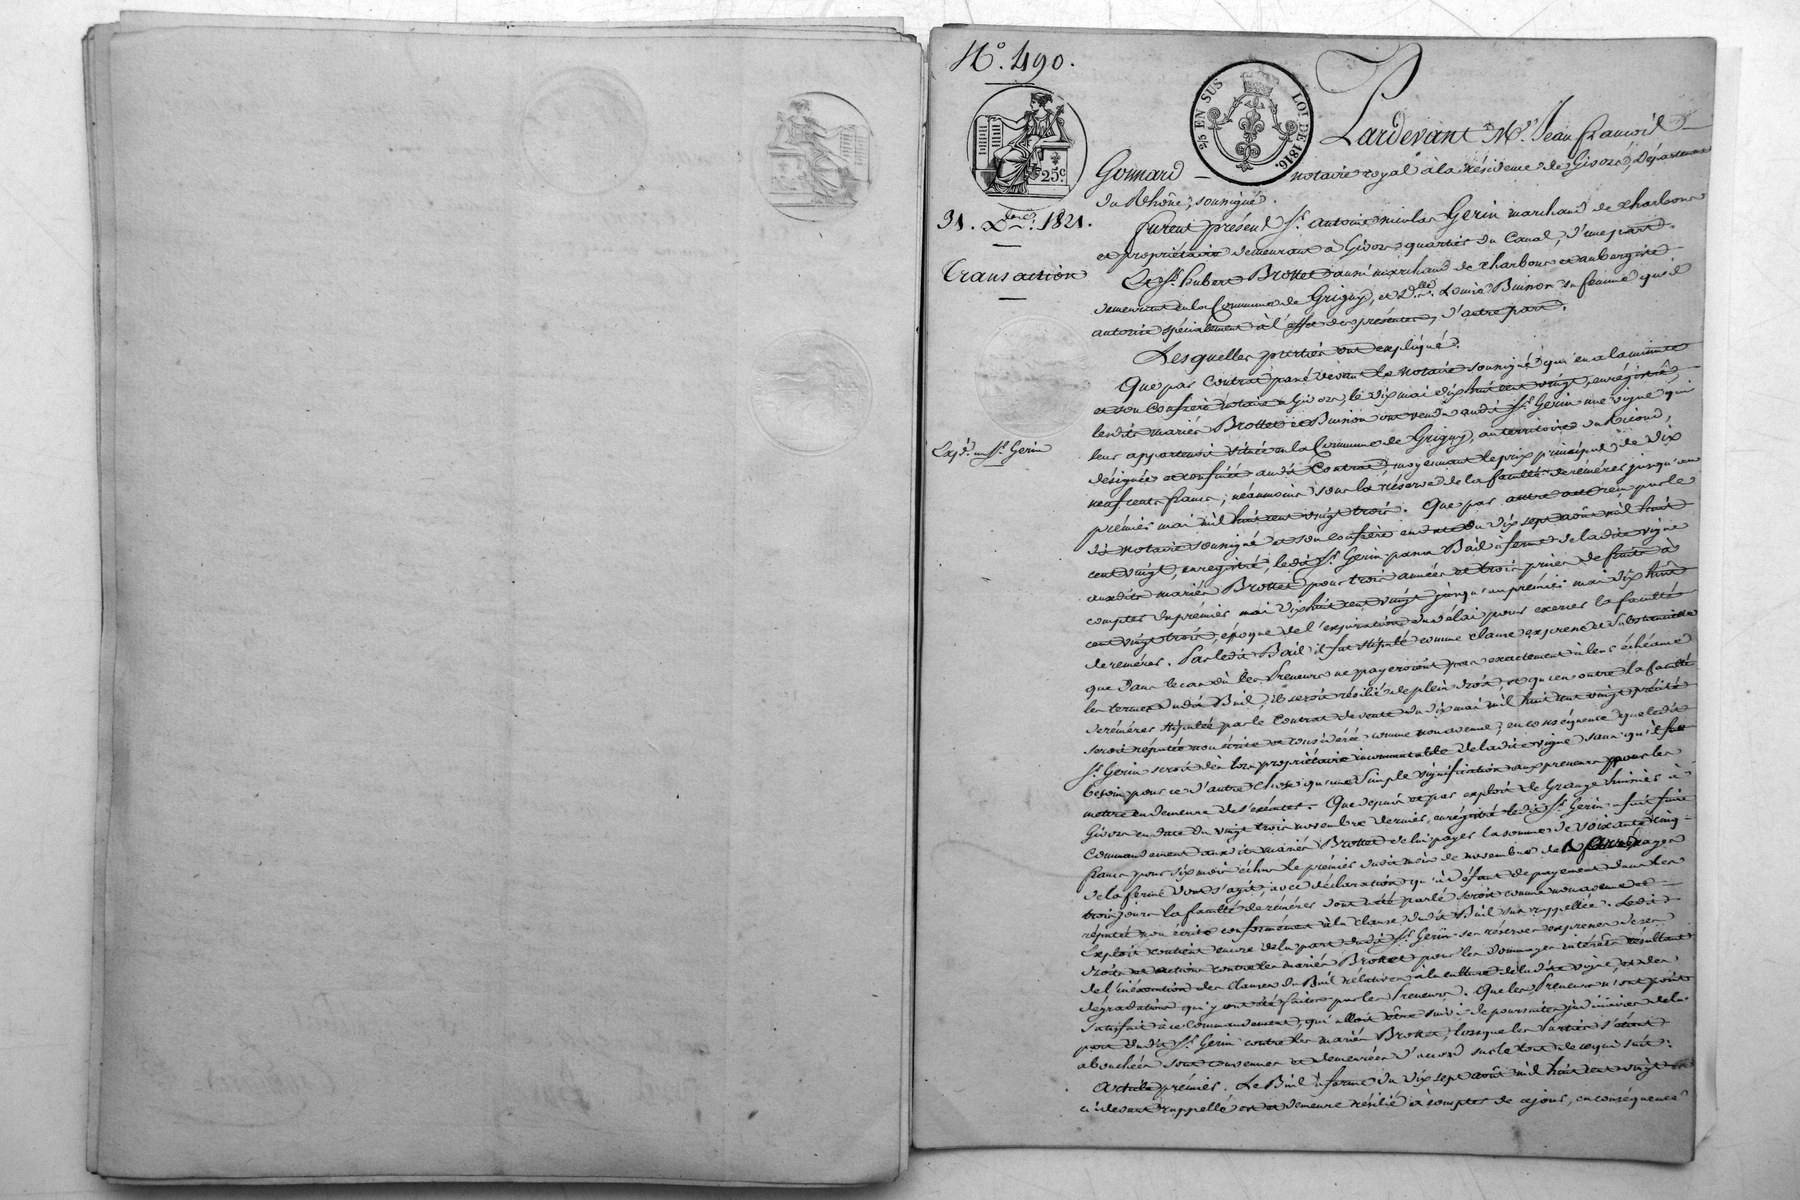 N.º 490.
2/5 EN SUS
LOI DE 1816.
25c
31. Xbre. 1821.
Transaction
Expd. au Sr. Gerin
Pardevant Me. Jean François
Gonnard notaire royal à la résidence de Givors, Département
du Rhône, soussigné.
Furent présens Sr. Antoine Nicolas Gerin marchand de charbons
et propriétaire demeurant à Givors quartier du Canal, d'une part.
Et Sr. hubert Brottet ainé marchand de charbons et aubergiste
demeurant en la Commune de Grigny, et Dlle. Louise Buisson sa femme qu'il
autorise spécialement à l'effet des présentes, d'autre part.
Lesquelles parties ont expliqué.
Que par Contrat passé devant le Notaire soussigné qui en a la minute
et son Confrère notaire à Givors, le dix mai dix huit cent vingt, enregistré,
lesdits mariés Brottet et Buisson ont vendu audit Sr. Gerin une vigne qui
leur appartenoit située en la Commune de Grigny, au territoire du
désignée et confinée audit Contrat, moyennant le prix principal de dix
neuf cents francs; néanmoins sous la réserve de la faculté de réméré jusqu'au
premier mai mil huit cent vingt trois. Que par autre acte reçu par le
dit notaire soussigné et son confrère en date du dix sept août mil huit
cent vingt, enregistré, ledit Sr. Gerin passa Bail à ferme de ladite vigne
auxdits mariés Brottet pour trois années et trois prises de fruits à
compter du premier mai dix huit cent vingt jusqu'au premier mai dix huit
cent vingt trois, époque de l'expiration du délai pour exercer la faculté
de réméré. Par ledit Bail il fut stipulé comme clause expresse et
que dans le cas où les Preneurs ne payeroient pas exactement à leur échéance
les termes dudit Bail, il seroit résilié de plein droit, et qu'en outre la faculté
de réméré stipulée par le Contrat de vente du dix mai mil huit cent vingt précité
seroit réputée non écrite et considérée comme non avenue; en conséquence que ledit
Sr. Gerin seroit dès lors propriétaire incommutable de ladite vigne sans qu'il fut
besoin pour ce d'autre chose qu'une simple signification aux preneurs pour les
mettre en demeure de s'exécuter. Que depuis et par exploit de Grange huissier à
Givors en date du vingt trois novembre dernier, enregistré ledit Sr. Gerin a fait faire
Commandement auxdits mariés Brottet de lui payer la somme de soixante cinq
francs pour six mois échus le premier dudit mois de novembre de
de la ferme dont s'agit, avec déclaration qu'à défaut de payement dans les
trois jours la faculté de réméré dont a été parlé seroit comme non avenue et
réputée non écrite conformément à la clause dudit Bail sus rappellée. Ledit
Exploit contient encore de la part dudit Sr. Gerin ses réserves expresses de ses
droits et actions contre les mariés Brottet pour les dommages intérêts résultant
de l'inexécution des clauses du Bail rélatives à la culture de ladite vigne, et des
dégradations qui y ont été faites par les Preneurs. Que les Preneurs n'ont point
satisfait à ce commandement, qui alloit être suivi de poursuites judiciaires de la
part dudit Sr. Gerin contre les mariés Brottet, lorsque les Parties s'étant
abouchées sont convenues et demeurées d'accord sur le tout de ce qui suit:
Article premier. Le Bail à ferme du dix sept août mil huit cent vingt
ci devant rappellé est et demeure résilié à compter de ce jour, en conséquence